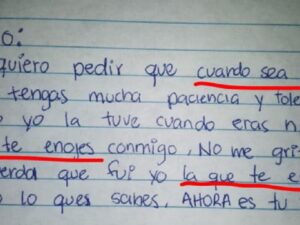 o:
quiero pedir que cuando sea
tengas mucha paciencia y tole
yo la tuve cuando eras n
te enojes conmigo. No me gri
erda que fui yo la que te e
lo ques sabes, AHORA es tu